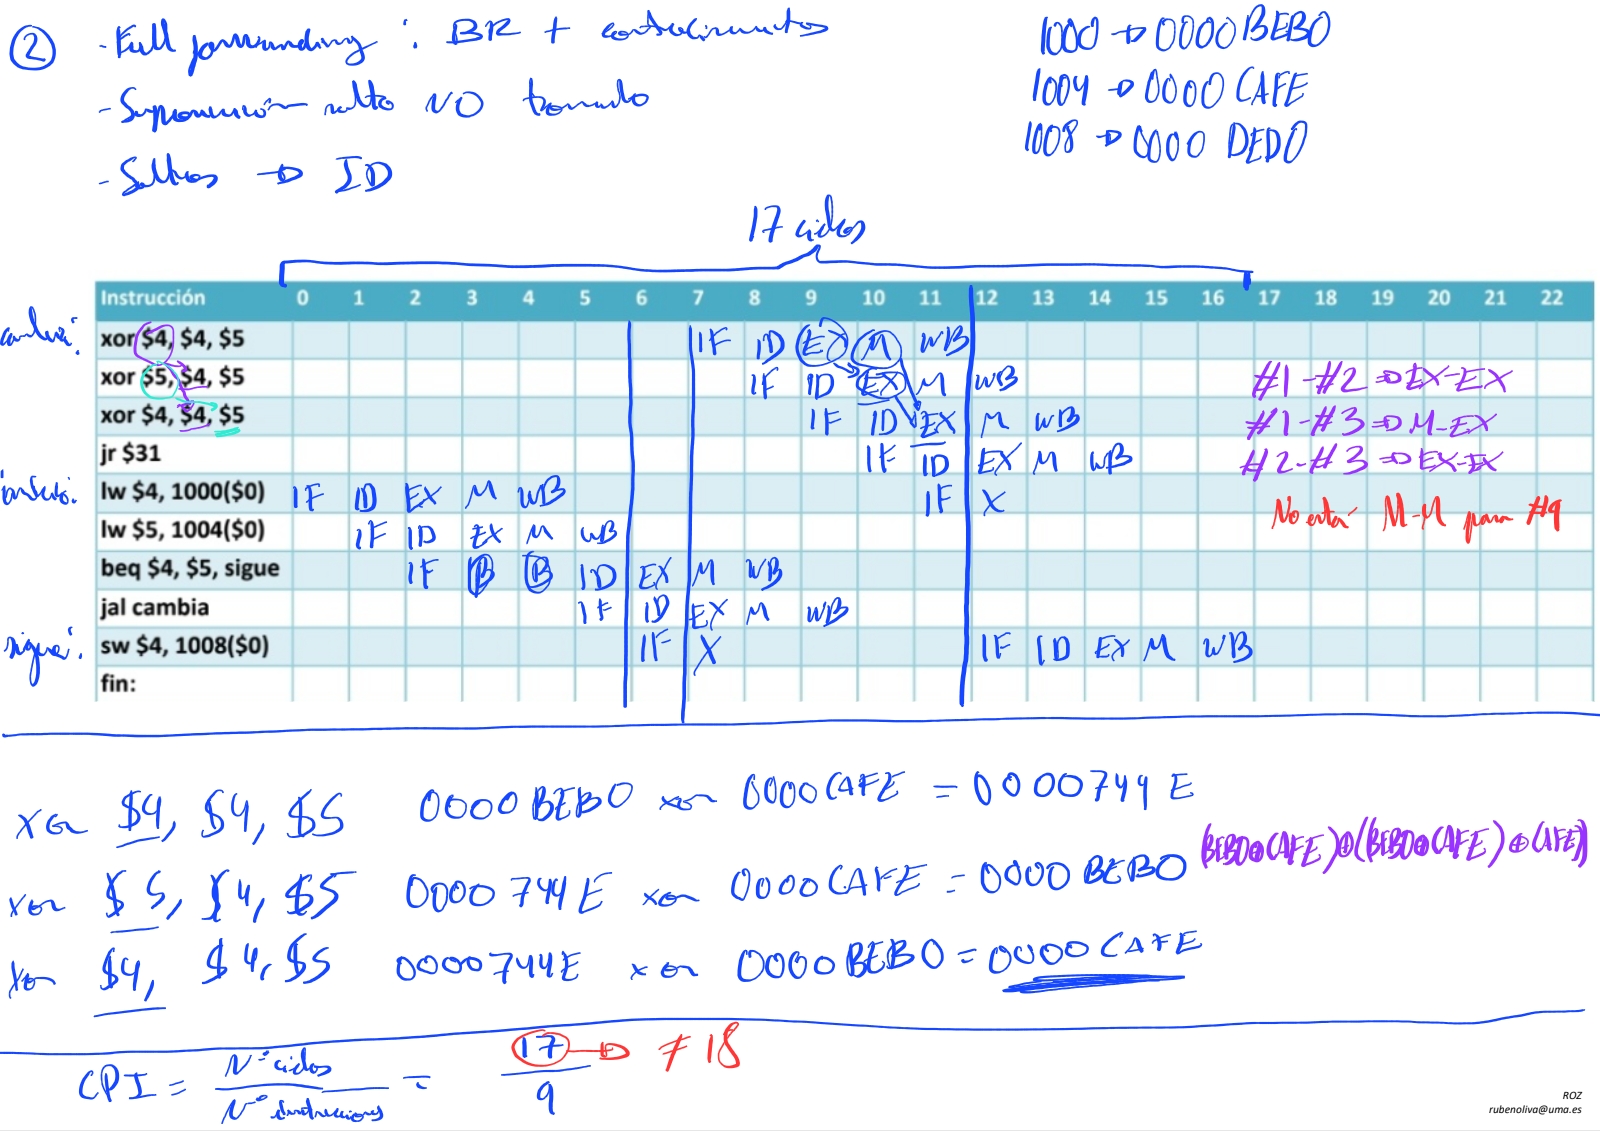 ② - Full forwarding : BR + cortocircuitos
- Suposición salto NO tomado
- Saltos → ID
1000 → 0000 BEBO
1004 → 0000 CAFE
1008 → 0000 DEDO
17 ciclos
Instrucción 0 1 2 3 4 5 6 7 8 9 10 11 12 13 14 15 16 17 18 19 20 21 22
cambia: xor $4, $4, $5 IF ID EX M WB
xor $5, $4, $5 IF ID EX M WB #1-#2 ⇒ EX-EX
xor $4, $4, $5 IF ID EX M WB #1-#3 ⇒ M-EX
jr $31 IF ID EX M WB #2-#3 ⇒ EX-EX
lw $4, 1000($0) IF ID EX M WB IF X No está M-M para #9
lw $5, 1004($0) IF ID EX M WB
beq $4, $5, sigue IF B B ID EX M WB
jal cambia IF ID EX M WB
sigue: sw $4, 1008($0) IF X IF ID EX M WB
fin:
xor $4, $4, $5 0000 BEBO xor 0000 CAFE = 0000744E
xor $5, $4, $5 0000 744E xor 0000 CAFE = 0000 BEBO (BEBO⊕CAFE)⊕((BEBO⊕CAFE)⊕CAFE))
xor $4, $4, $5 0000744E xor 0000 BEBO = 0000 CAFE
CPI = Nº ciclos / Nº instrucciones = 17 / 9 → ≠ 18
ROZ
rubenoliva@uma.es